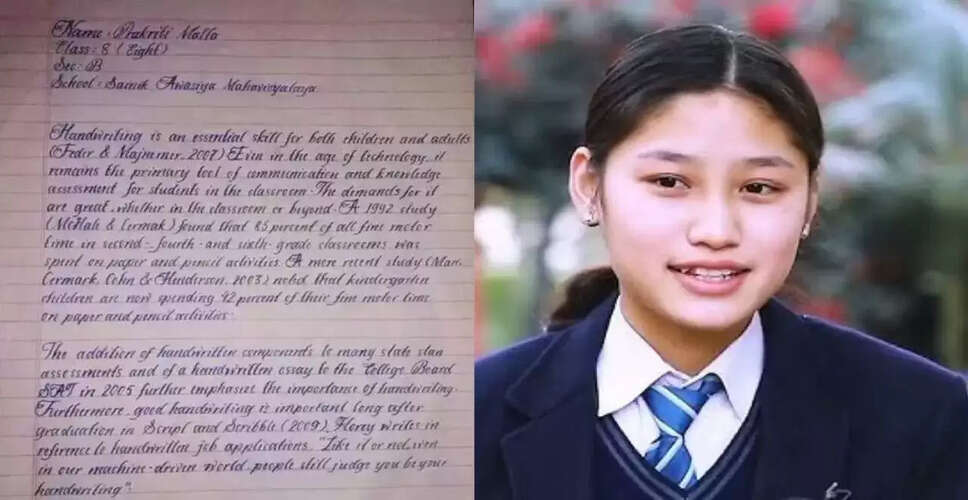 Name : Prakriti Malla
Class : 8 (Eight)
Sec : B
School : Sainik Awasiya Mahavidyalaya
Handwriting is an essential skill for both children and adults
(Feder & Majnemer, 2007) Even in the age of technology, it
remains the primary tool of communication and knowledge
assessment for students in the classroom. The demands for it
are great, whether in the classroom or beyond. A 1992 study
(McHale & Cermak) found that 85 percent of all fine motor
time in second-, fourth- and sixth-grade classrooms was
spent on paper and pencil activities. A more recent study (Marr,
Cermark, Cohn & Henderson, 2003) noted that kindergarten
children are now spending 42 percent of their fine motor time
on paper and pencil activities.
The addition of handwritten components to many state stan
assessments and of a handwritten essay to the College Board
SAT in 2005 further emphasize the importance of handwriting.
Furthermore, good handwriting is important long after
graduation in Script and Scribble (2009), Florey writes in
reference to handwritten job applications, "Like it or not, even
in our machine-driven world, people still judge you by your
handwriting".